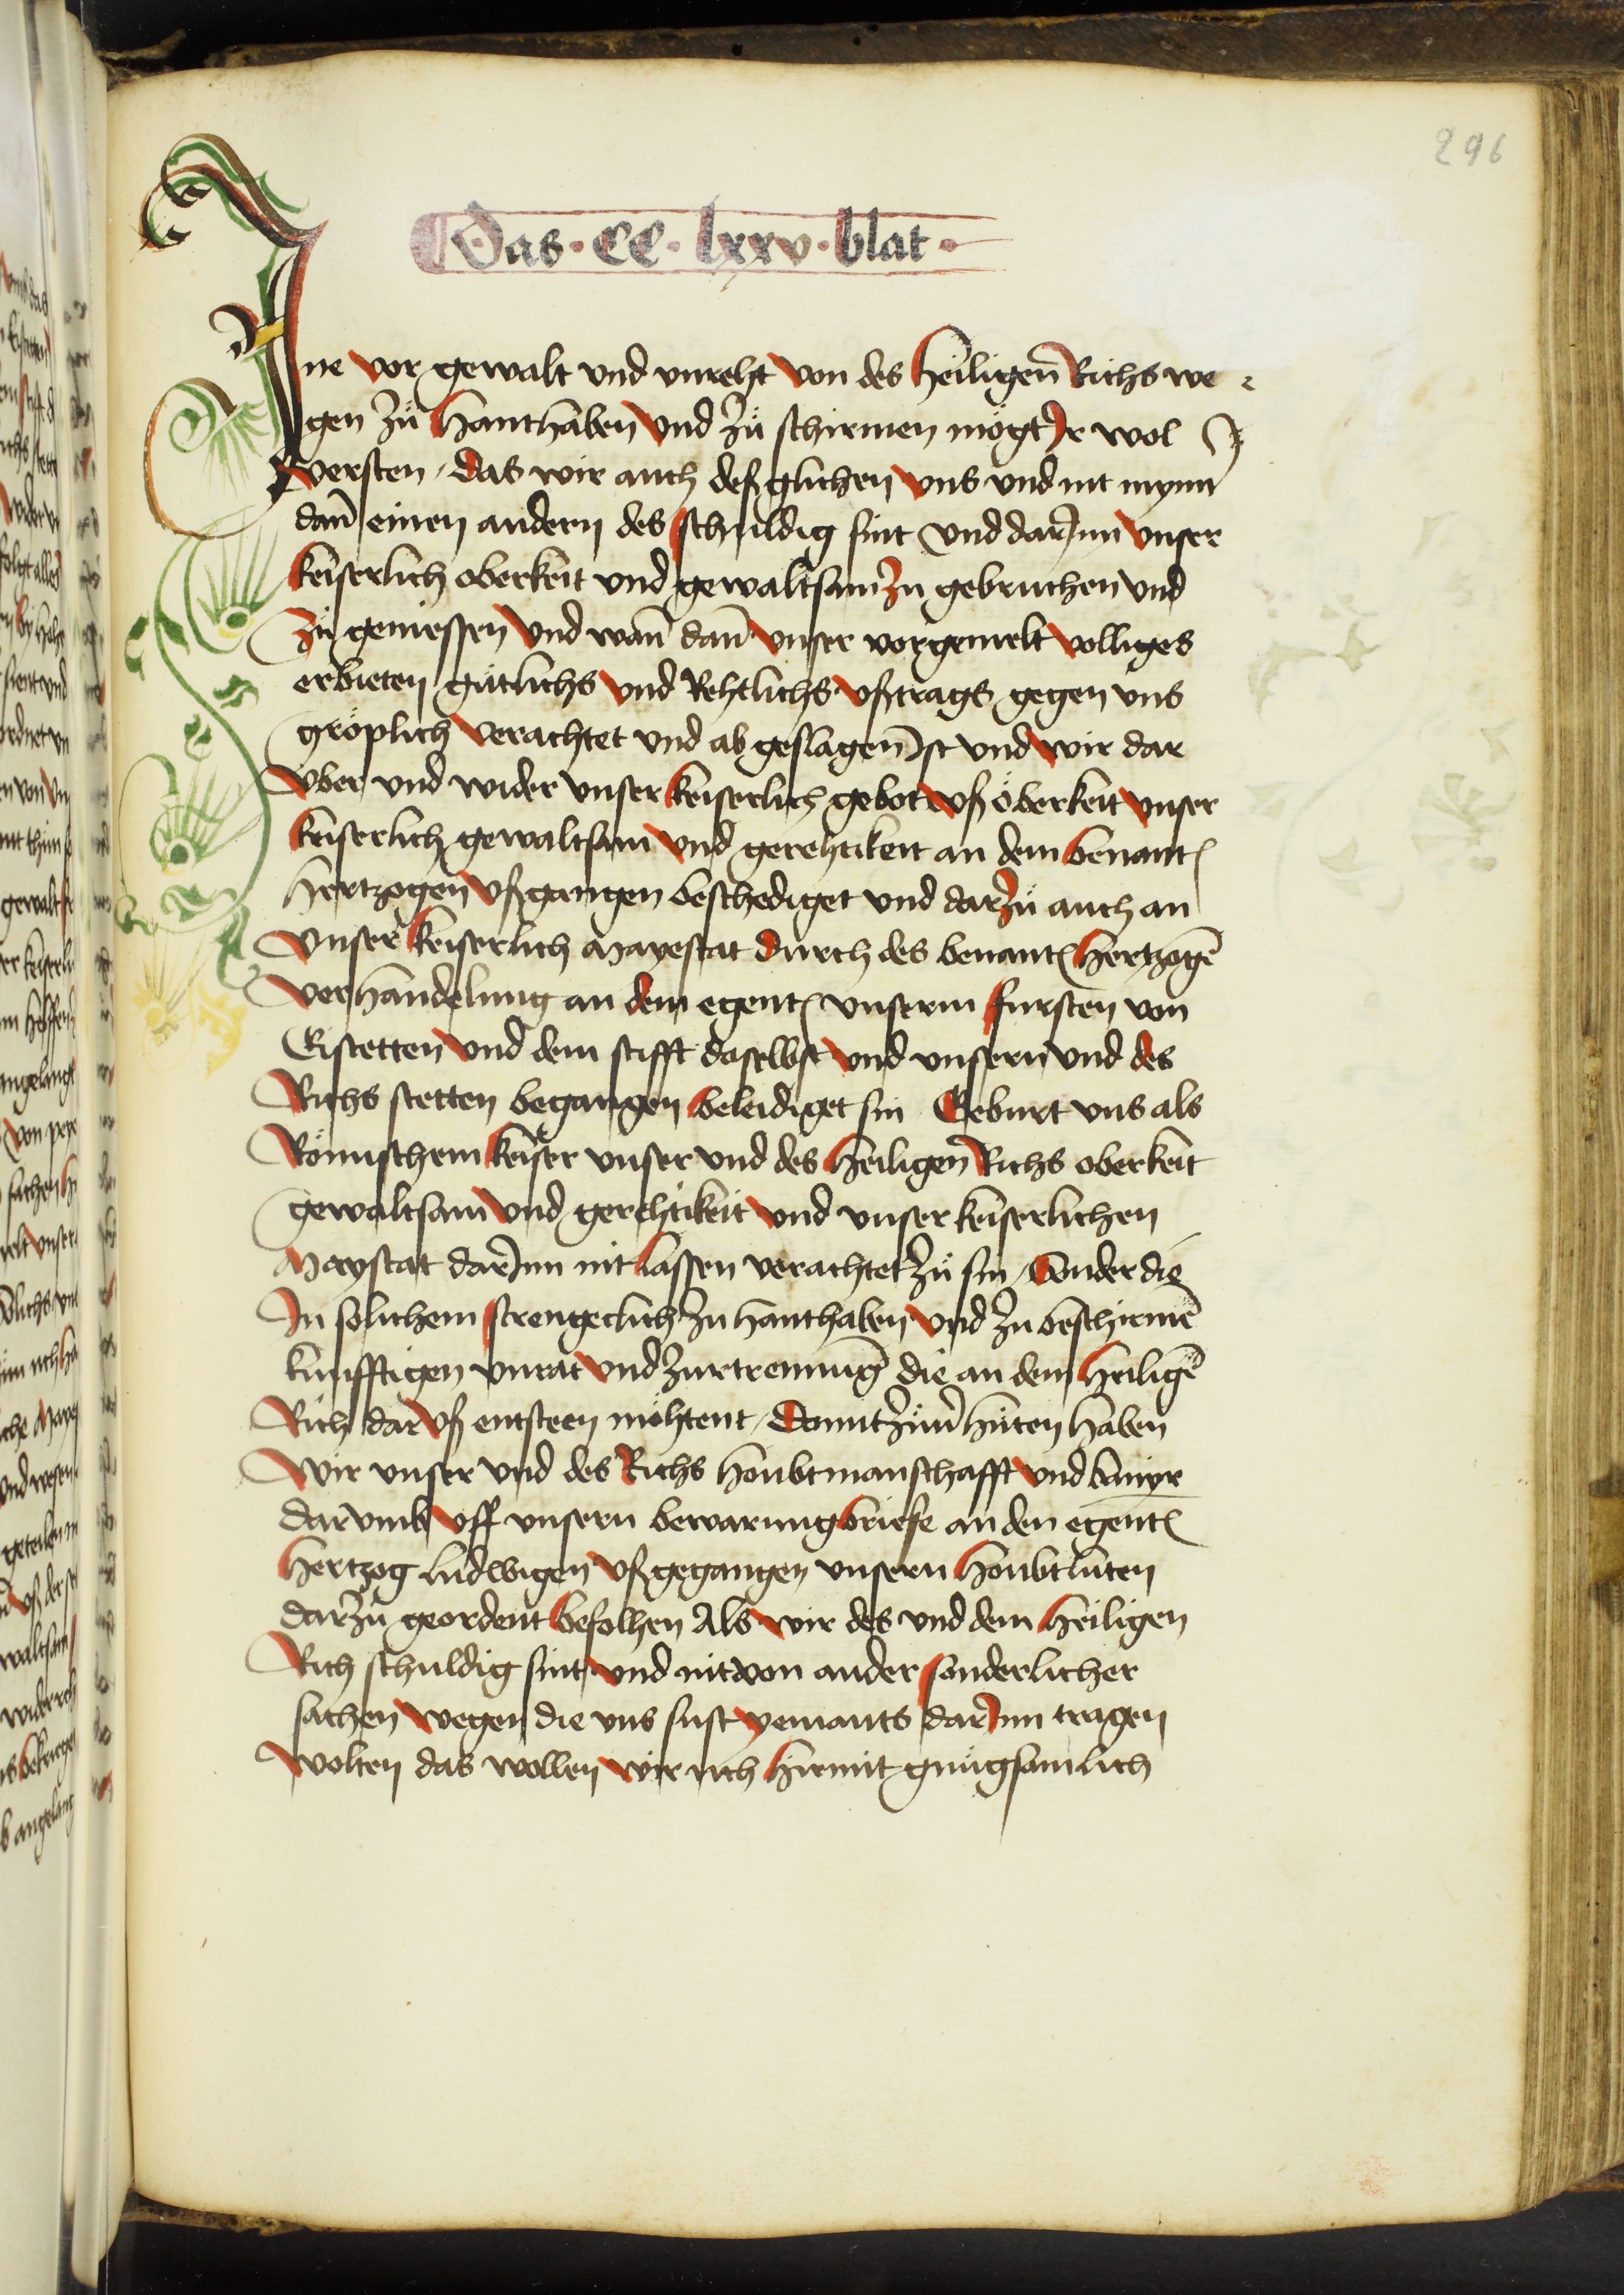 296
Das · CC · lxxv · blat ·
Ine vor gewalt vnd vnreht von des heiligen Richs we
gen zů hanthaben vnd zů schirmen mögt Ir wol
versten / das wir auch deßglichen vns vnd nit mynn
dan̄ einen andern des schuldig sint vnd dar Inn vnser
keiserlich oberkeit vnd gewaltsam zu gebruchen vnd
zů geniessen vnd wan̄ dan̄ vnser vorgemelt volliges
erbieten gütlichs vnd Rehtlichs vßtrags gegen vns
gröplich verachtet vnd abgeslagen Ist vnd wir dar
vber vnd wider vnser keiserlich gebot vß öberkeit vnser
keiserlich gewaltsam vnd gerehtikeit an dem benant
hertzogen vßgangen beschediget vnd dar zů auch an
vnser keiserlich Mayestat durch des benant hertzogē
verhandelung an dem egent vnserm fursten von
Eistetten vnd dem stifft daselbst vnd vnsern vnd des
Richs stetten begangen beleidiget sin Geburt vns als
Römischem keiser vnser vnd des heiligen Richs oberkeit
gewaltsam vnd gerehtikeit vnd vnser keiserlichen
Maystat dar Inn nit lassen verachtet zů sin / Sonder die
In solichem strengeclich zu hanthaben vnd zu beschirmē
kunfftigen vnrat vnd zurtrennung die an dem heiligē
Rich dar vß entsteen möhtent / Domit zům hüten haben
Wir vnser vnd des Richs houbtmanschafft vnd banyr
darvmb vff vnsern bewarungbriefe an den egent
hertzog ludwigen vßgegangen vnsern houbtlüten
darzů geordent befolhen Als wir des vnd dem heiligen
Rich schuldig sint vnd nit von ander sonderlicher
sachen wegen die vns sust yemants dar Inn tragen
wolten das wollen wir uch hiemit gnůgsamlich